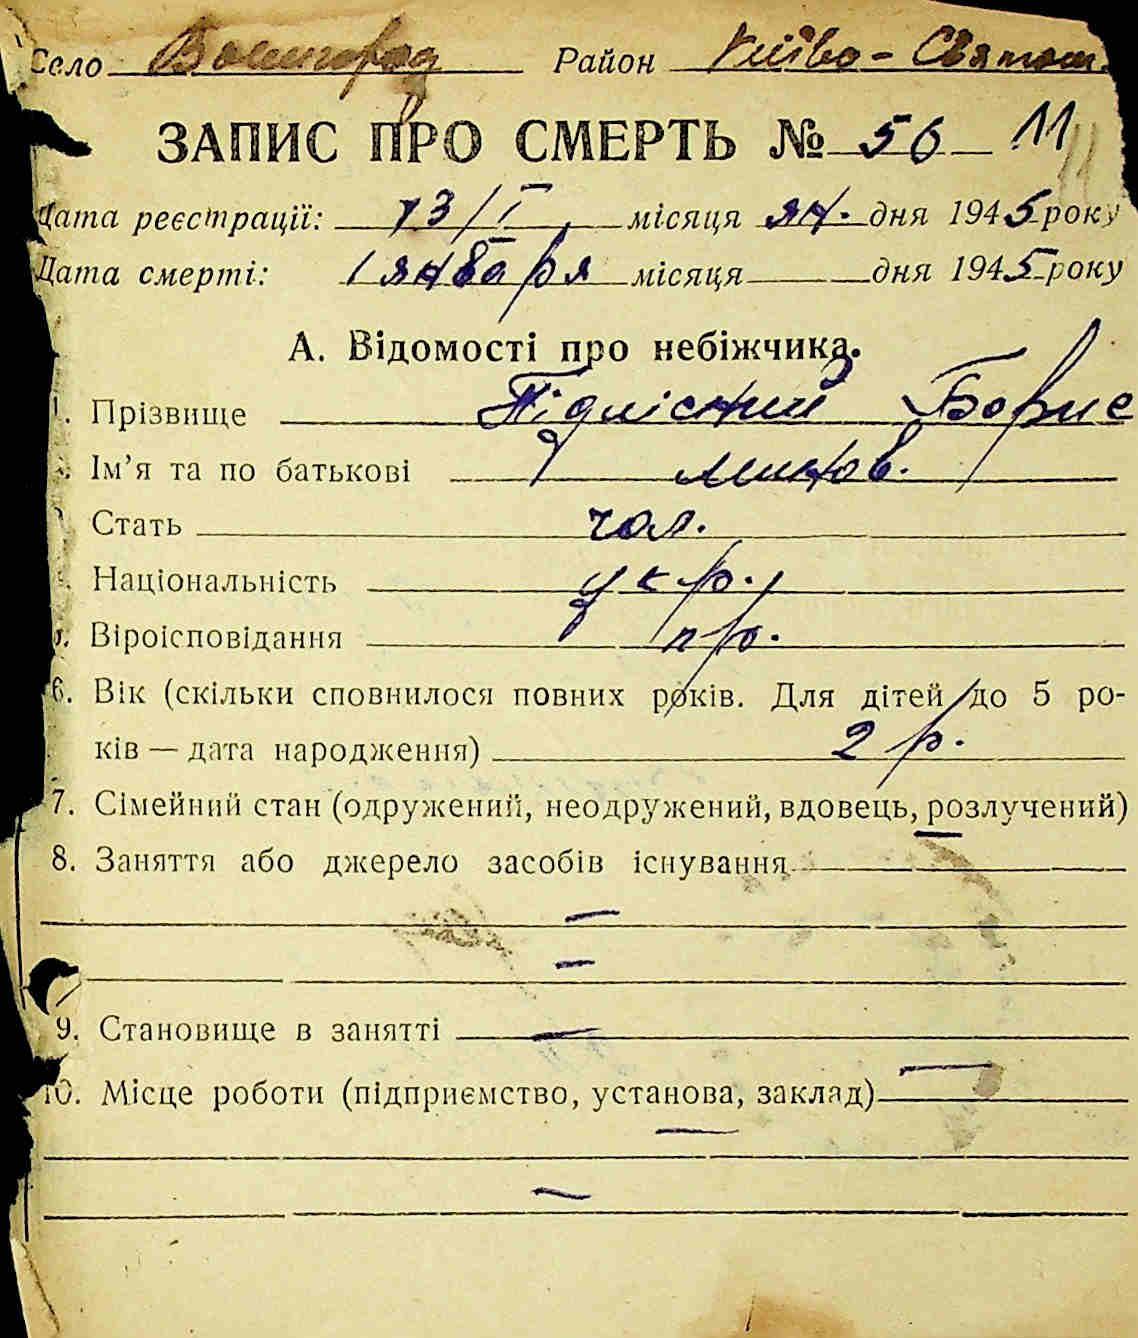 Село Вышгород Район Київо-Святош.
ЗАПИС ПРО СМЕРТЬ № 56 11
Дата реєстрації: 13/I місяця ян. дня 1945 року
Дата смерті: 1 января місяця дня 1945 року
А. Відомості про небіжчика.
1. Прізвище Підлісний Борис
Ім'я та по батькові
Стать чол.
Національність укр.
Віроісповідання пр.
6. Вік (скільки сповнилося повних років. Для дітей до 5 ро-
ків — дата народження) 2 р.
7. Сімейний стан (одружений, неодружений, вдовець, розлучений)
8. Заняття або джерело засобів існування
9. Становище в занятті
10. Місце роботи (підприємство, установа, заклад)